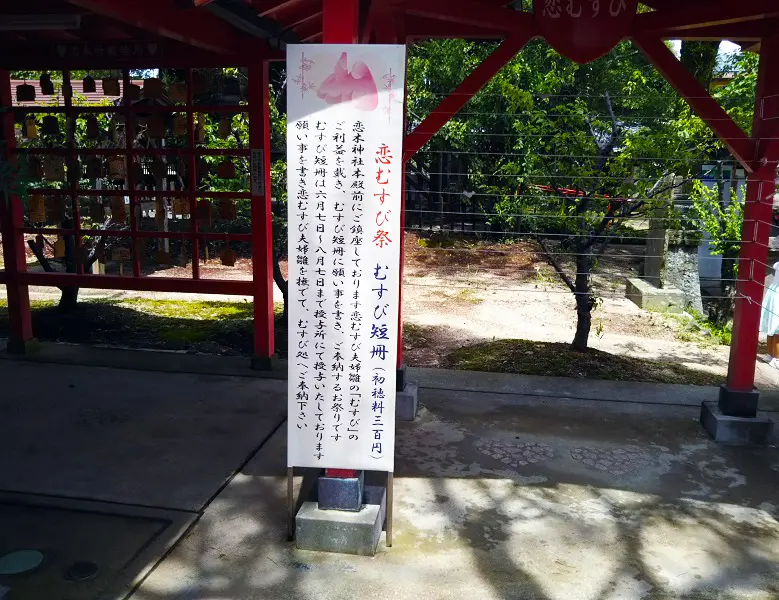 恋むすび
恋むすび祭 むすび短冊(初穂料三百円)
恋木神社本殿前にご鎮座しております恋むすび夫婦雛の「むすび」の
ご利益を戴き、むすび短冊に願い事を書き、ご奉納するお祭りです
むすび短冊は六月七日~八月七日まで授与所にて授与いたしております
願い事を書き恋むすび夫婦雛を撫でて、むすび処へご奉納下さい